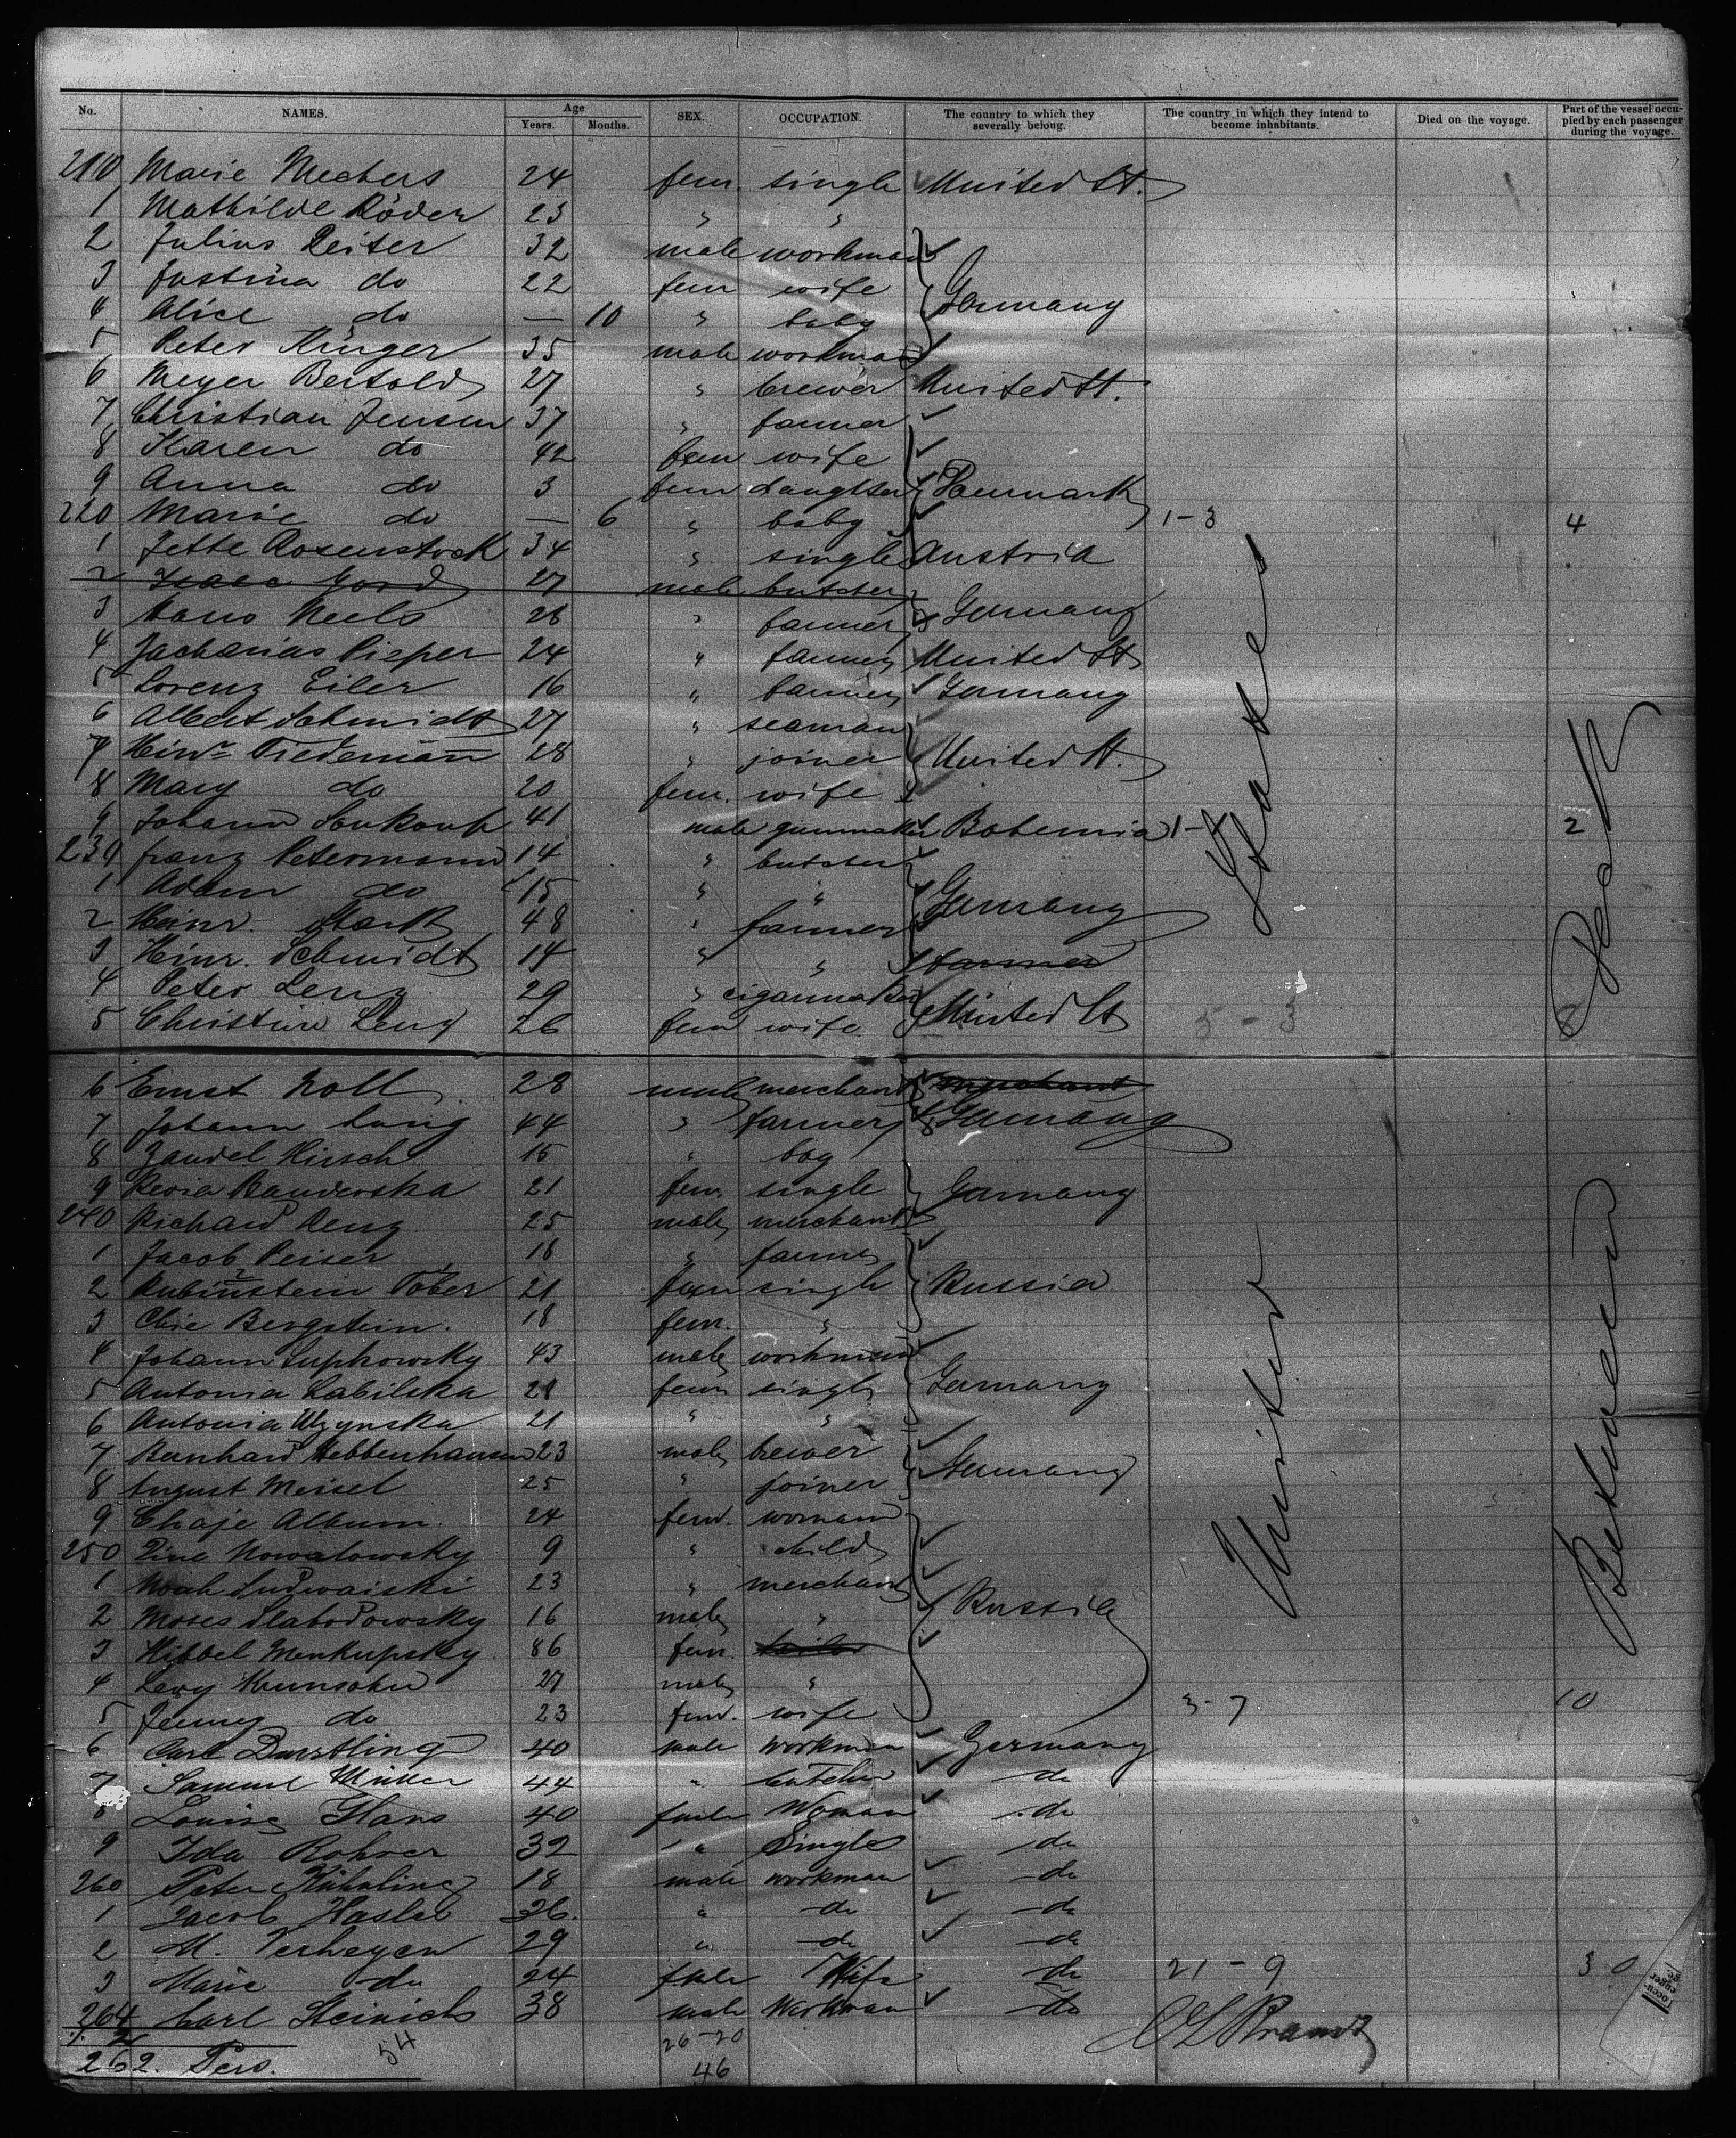 No. NAMES. Age Years. Months. SEX. OCCUPATION. The country to which they severally belong. The country in which they intend to become inhabitants. Died on the voyage. Part of the vessel occupied by each passenger during the voyage.
210 Marie 24 fem. single United St.
1 Mathilde Röder 23 " "
2 Julius Reiter 32 male workman
3 Justina do 22 fem wife Germany
4 Alice do — 10 " baby
5 Peter Krüger 35 male workman
6 Meyer Bertold 27 " brewer United St.
7 Christian Jensen 37 " farmer
8 Karen do 42 fem wife
9 Anna do 3 fem daughter Denmark
220 Marie do — 6 " baby 1-3 4
1 Jette Rosenstock 34 " single Austria
2 27 male butcher
3 Hans Neels 26 " farmer Germany
4 Zacharias Pieper 24 " farmer United St
5 Lorenz Eiler 16 " farmer Germany
6 Albert Schmidt 27 " seaman
7 Hinr. Tiedemann 28 " joiner United St.
8 Mary do 20 fem. wife
9 Johann Soukoup 41 male gunmaker Bohemia 2
230 Franz Petermann 14 " butcher
1 Adam do 15 " "
2 Heinr. Stark 48 " farmer Germany
3 Hinr. Schmidt 14 " "
4 Peter Lenz 29 " cigarmaker
5 Christine Lenz 26 fem wife United St 5-3
6 Ernst Noll 28 male merchant merchant
7 Johann Lang 44 " farmer Germany
8 Zandel Hirsch 15 " boy
9 21 fem single Germany
240 Richard 25 male merchant
1 Jacob Peiser 18 " farmer
2 Rubinstein Tober 21 fem single Russia
3 Bergstein. 18 fem. "
4 Johann Lupkowsky 43 male workman
5 Antonia Labilska 21 fem single Germany
6 Antonia 21 " "
7 Bernhard Hebbenhausen 23 male brewer
8 August Meisel 25 " joiner Germany
9 Chaje Album 24 fem. woman
250 Nowalowsky 9 " child
1 Noah 23 " merchant
2 Moses Slabodowsky 16 male " Russia
3 Menkupsky 86 fem. tailor
4 Levy 27 male "
5 Jenny do 23 fem. wife 3-7 10
6 Carl 40 male Workman Germany
7 Samuel Müller 44 " butcher do
8 Louise 40 Woman do
9 Ida Rohrer 32 " Single do
260 Peter 18 male workman do
1 Jacob Hasler 36. " do do
2 M. Verheyen 29 " do do
3 Marie do 24 Wife do 21-9 30
264 Carl Steinich 38 male Workman do
2 26-20
262. Pers. 54 46
United States
Between Deck